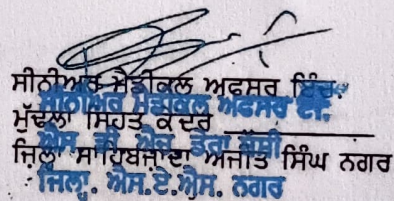 ਸੀਨੀਅਰ ਮੈਡੀਕਲ ਅਫਸਰ ਇੰਚ.
ਸੀਨੀਅਰ ਮੈਡੀਕਲ ਅਫਸਰ
ਮੁੱਢਲਾ ਸਿਹਤ ਕੇਂਦਰ
ਐਸ ਡੀ ਐਚ ਡੇਰਾ ਬੱਸੀ
ਜ਼ਿਲ੍ਹਾ ਸਾਹਿਬਜ਼ਾਦਾ ਅਜੀਤ ਸਿੰਘ ਨਗਰ
ਜਿਲ੍ਹਾ. ਐਸ.ਏ.ਐਸ. ਨਗਰ